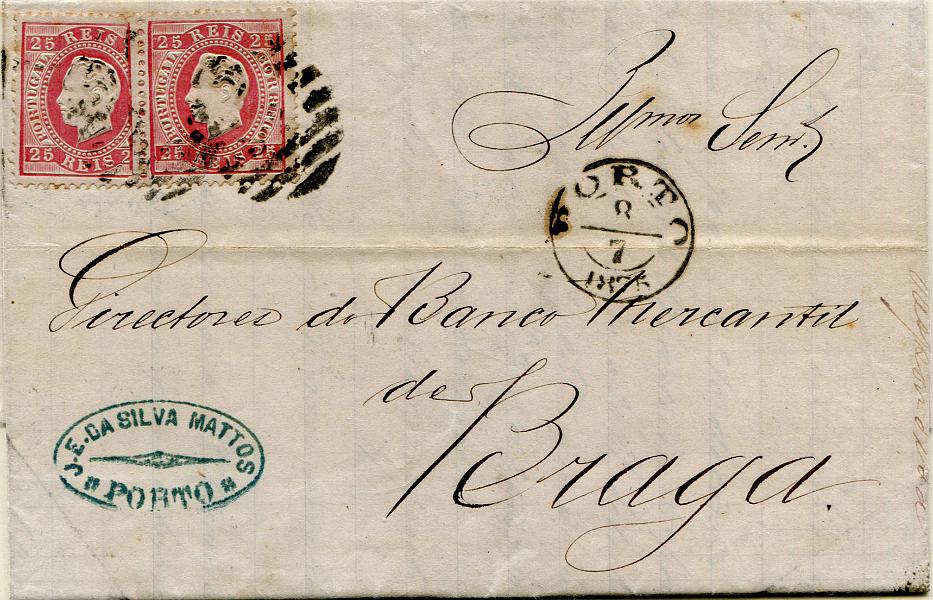 25 REIS
PORTUGAL
25 REIS 2
25 REIS 25
PORTUGAL CORREIO
25 REIS 25
Illmos Senrs
PORTO
8
7
1875
Directores do Banco Mercantil
de
Braga.
J. E. DA SILVA MATTOS
PORTO